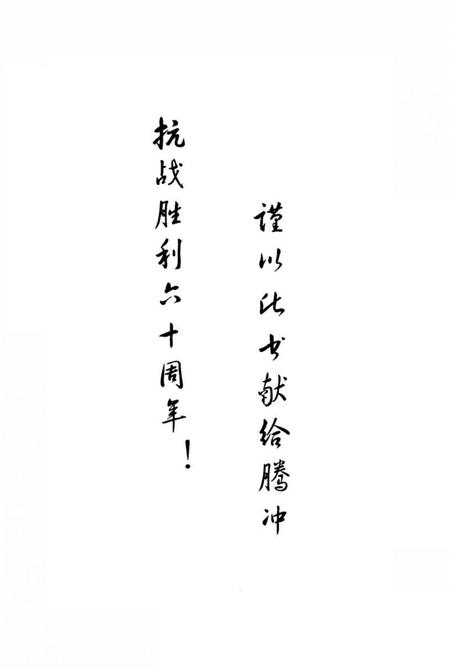 谨以此书献给腾冲
抗战胜利六十周年！